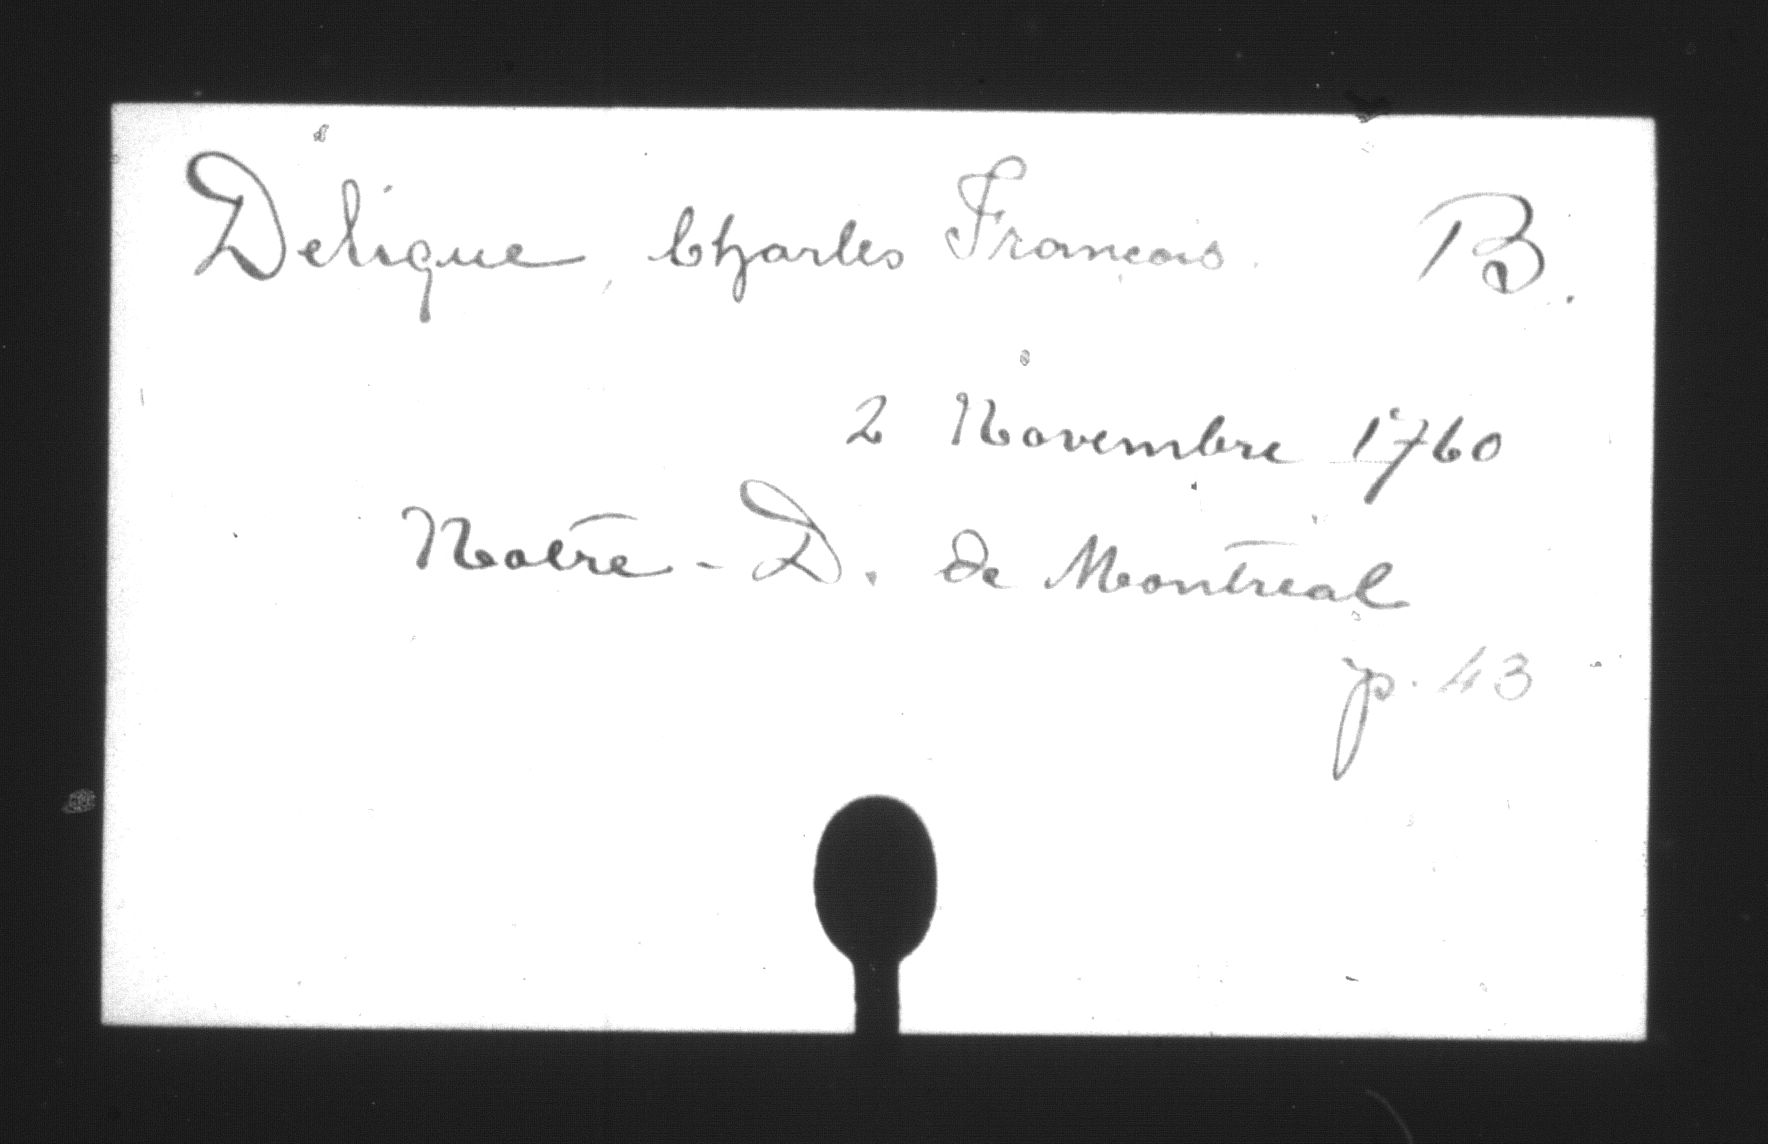 Delique, Charles François. B.
2 Novembre 1760
Notre-D. de Montreal
p. 43